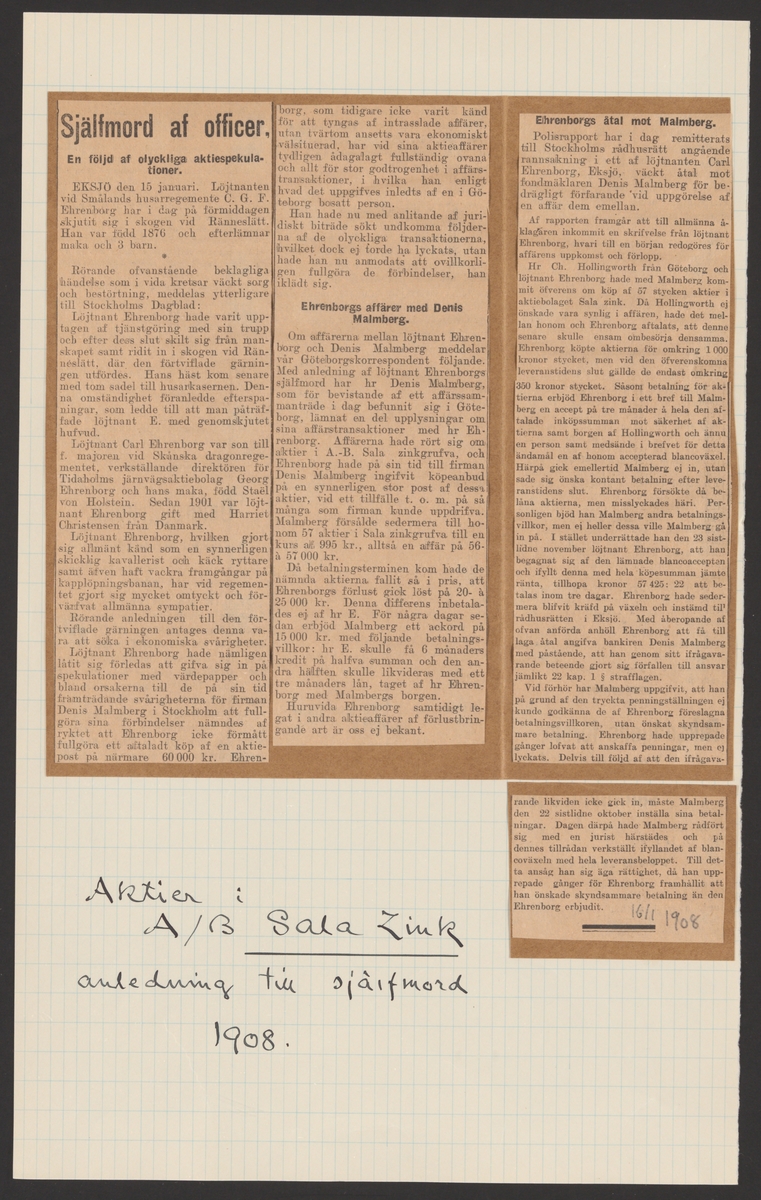 Själfmord af officer.
En följd af olyckliga aktiespekula-
tioner.
EKSJÖ den 15 januari. Löjtnanten
vid Smålands husarregemente C. G. F.
Ehrenborg har i dag på förmiddagen
skjutit sig i skogen vid Ränneslätt.
Han var född 1876 och efterlämnar
maka och 3 barn.
*
Rörande ofvanstående beklagliga
händelse som i vida kretsar väckt sorg
och bestörtning, meddelas ytterligare
till Stockholms Dagblad:
Löjtnant Ehrenborg hade varit upp-
tagen af tjänstgöring med sin trupp
och efter dess slut skilt sig från man-
skapet samt ridit in i skogen vid Rän-
neslätt, där den förtviflade gärnin-
gen utfördes. Hans häst kom senare
med tom sadel till husarkasernen. Den-
na omständighet föranledde efterspa-
ningar, som ledde till att man påträf-
fade löjtnant E. med genomskjutet
hufvud.
Löjtnant Carl Ehrenborg var son till
f. majoren vid Skånska dragonrege-
mentet, verkställande direktören för
Tidaholms järnvägsaktiebolag Georg
Ehrenborg och hans maka, född Staël
von Holstein. Sedan 1901 var löjt-
nant Ehrenborg gift med Harriet
Christensen från Danmark.
Löjtnant Ehrenborg, hvilken gjort
sig allmänt känd som en synnerligen
skicklig kavallerist och käck ryttare
samt äfven haft vackra framgångar på
kapplöpningsbanan, har vid regemen-
tet gjort sig mycket omtyckt och för-
värfvat allmänna sympatier.
Rörande anledningen till den för-
tviflade gärningen antages denna va-
ra att söka i ekonomiska svårigheter.
Löjtnant Ehrenborg hade nämligen
låtit sig förledas att gifva sig in på
spekulationer med värdepapper och
bland orsakerna till de på sin tid
framträdande svårigheterna för firman
Denis Malmberg i Stockholm att full-
göra sina förbindelser nämndes af
ryktet att Ehrenborg icke förmått
fullgöra ett aftaladt köp af en aktie-
post på närmare 60 000 kr. Ehren-
borg, som tidigare icke varit känd
för att tyngas af intrasslade affärer,
utan tvärtom ansetts vara ekonomiskt
välsituerad, har vid sina aktieaffärer
tydligen ådagalagt fullständig ovana
och allt för stor godtrogenhet i affärs-
transaktioner, i hvilka han enligt
hvad det uppgifves inledts af en i Gö-
teborg bosatt person.
Han hade nu med anlitande af juri-
diskt biträde sökt undkomma följder-
na af de olyckliga transaktionerna,
hvilket dock ej torde ha lyckats, utan
hade han nu anmodats att ovillkorli-
gen fullgöra de förbindelser, han
iklädt sig.
Ehrenborgs affärer med Denis
Malmberg.
Om affärerna mellan löjtnant Ehren-
borg och Denis Malmberg meddelar
vår Göteborgskorrespondent följande.
Med anledning af löjtnant Ehrenborgs
själfmord har hr Denis Malmberg,
som för bevistande af ett affärssam-
manträde i dag befunnit sig i Göte-
borg, lämnat en del upplysningar om
sina affärstransaktioner med hr Eh-
renborg. Affärerna hade rört sig om
aktier i A.-B. Sala zinkgrufva, och
Ehrenborg hade på sin tid till firman
Denis Malmberg ingifvit köpeanbud
på en synnerligen stor post af dessa
aktier, vid ett tillfälle t. o. m. på så
många som firman kunde uppdrifva.
Malmberg försålde sedermera till ho-
nom 57 aktier i Sala zinkgrufva till en
kurs af 995 kr., alltså en affär på 56-
à 57 000 kr.
Då betalningsterminen kom hade de
nämnda aktierna fallit så i pris, att
Ehrenborgs förlust gick löst på 20- à
25 000 kr. Denna differens inbetala-
des ej af hr E. För några dagar se-
dan erbjöd Malmberg ett ackord på
15 000 kr. med följande betalnings-
villkor: hr E. skulle få 6 månaders
kredit på halfva summan och den an-
dra hälften skulle likvideras med ett
tre månaders lån, taget af hr Ehren-
borg med Malmbergs borgen.
Huruvida Ehrenborg samtidigt le-
gat i andra aktieaffärer af förlustbrin-
gande art är oss ej bekant.
Ehrenborgs åtal mot Malmberg.
Polisrapport har i dag remitterats
till Stockholms rådhusrätt angående
rannsakning i ett af löjtnanten Carl
Ehrenborg, Eksjö, väckt åtal mot
fondmäklaren Denis Malmberg för be-
drägligt förfarande vid uppgörelse af
en affär dem emellan.
Af rapporten framgår att till allmänna å-
klagaren inkommit en skrifvelse från löjtnant
Ehrenborg, hvari till en början redogöres för
affärens uppkomst och förlopp.
Hr Ch. Hollingworth från Göteborg och
löjtnant Ehrenborg hade med Malmberg kom-
mit öfverens om köp af 57 stycken aktier i
aktiebolaget Sala zink. Då Hollingworth ej
önskade vara synlig i affären, hade det mel-
lan honom och Ehrenborg aftalats, att denne
senare skulle ensam ombesörja densamma.
Ehrenborg köpte aktierna för omkring 1 000
kronor stycket, men vid den öfverenskomna
leveranstidens slut gällde de endast omkring
350 kronor stycket. Såsom betalning för ak-
tierna erbjöd Ehrenborg i ett bref till Malm-
berg en accept på tre månader å hela den af-
talade inköpssumman mot säkerhet af ak-
tierna samt borgen af Hollingworth och ännu
en person samt medsände i brefvet för detta
ändamål en af honom accepterad blancoväxel.
Härpå gick emellertid Malmberg ej in, utan
sade sig önska kontant betalning efter leve-
ranstidens slut. Ehrenborg försökte då be-
låna aktierna, men misslyckades häri. Per-
sonligen bjöd han Malmberg andra betalnings-
villkor, men ej heller dessa ville Malmberg gå
in på. I stället underrättade han den 23 sist-
lidne november löjtnant Ehrenborg, att han
begagnat sig af den lämnade blancoaccepten
och ifyllt denna med hela köpesumman jämte
ränta, tillhopa kronor 57 425: 22 att be-
talas inom tre dagar. Ehrenborg hade seder-
mera blifvit kräfd på växeln och instämd till
rådhusrätten i Eksjö. Med åberopande af
ofvan anförda anhöll Ehrenborg att få till
laga åtal angifva bankiren Denis Malmberg
med påstående, att han genom sitt ifrågava-
rande beteende gjort sig förfallen till ansvar
jämlikt 22 kap. 1 § strafflagen.
Vid förhör har Malmberg uppgifvit, att han
på grund af den tryckta penningställningen ej
kunde godkänna de af Ehrenborg föreslagna
betalningsvillkoren, utan önskat skyndsam-
mare betalning. Ehrenborg hade upprepade
gånger lofvat att anskaffa penningar, men ej
lyckats. Delvis till följd af att den ifrågava-
rande likviden icke gick in, måste Malmberg
den 22 sistlidne oktober inställa sina betal-
ningar. Dagen därpå hade Malmberg rådfört
sig med en jurist härstädes och på
dennes tillrådan verkställt ifyllandet af blan-
coväxeln med hela leveransbeloppet. Till det-
ta ansåg han sig äga rättighet, då han upp-
repade gånger för Ehrenborg framhållit att
han önskade skyndsammare betalning än den
Ehrenborg erbjudit.
16/1 1908
Aktier i
A/B Sala Zink
anledning till själfmord
1908.